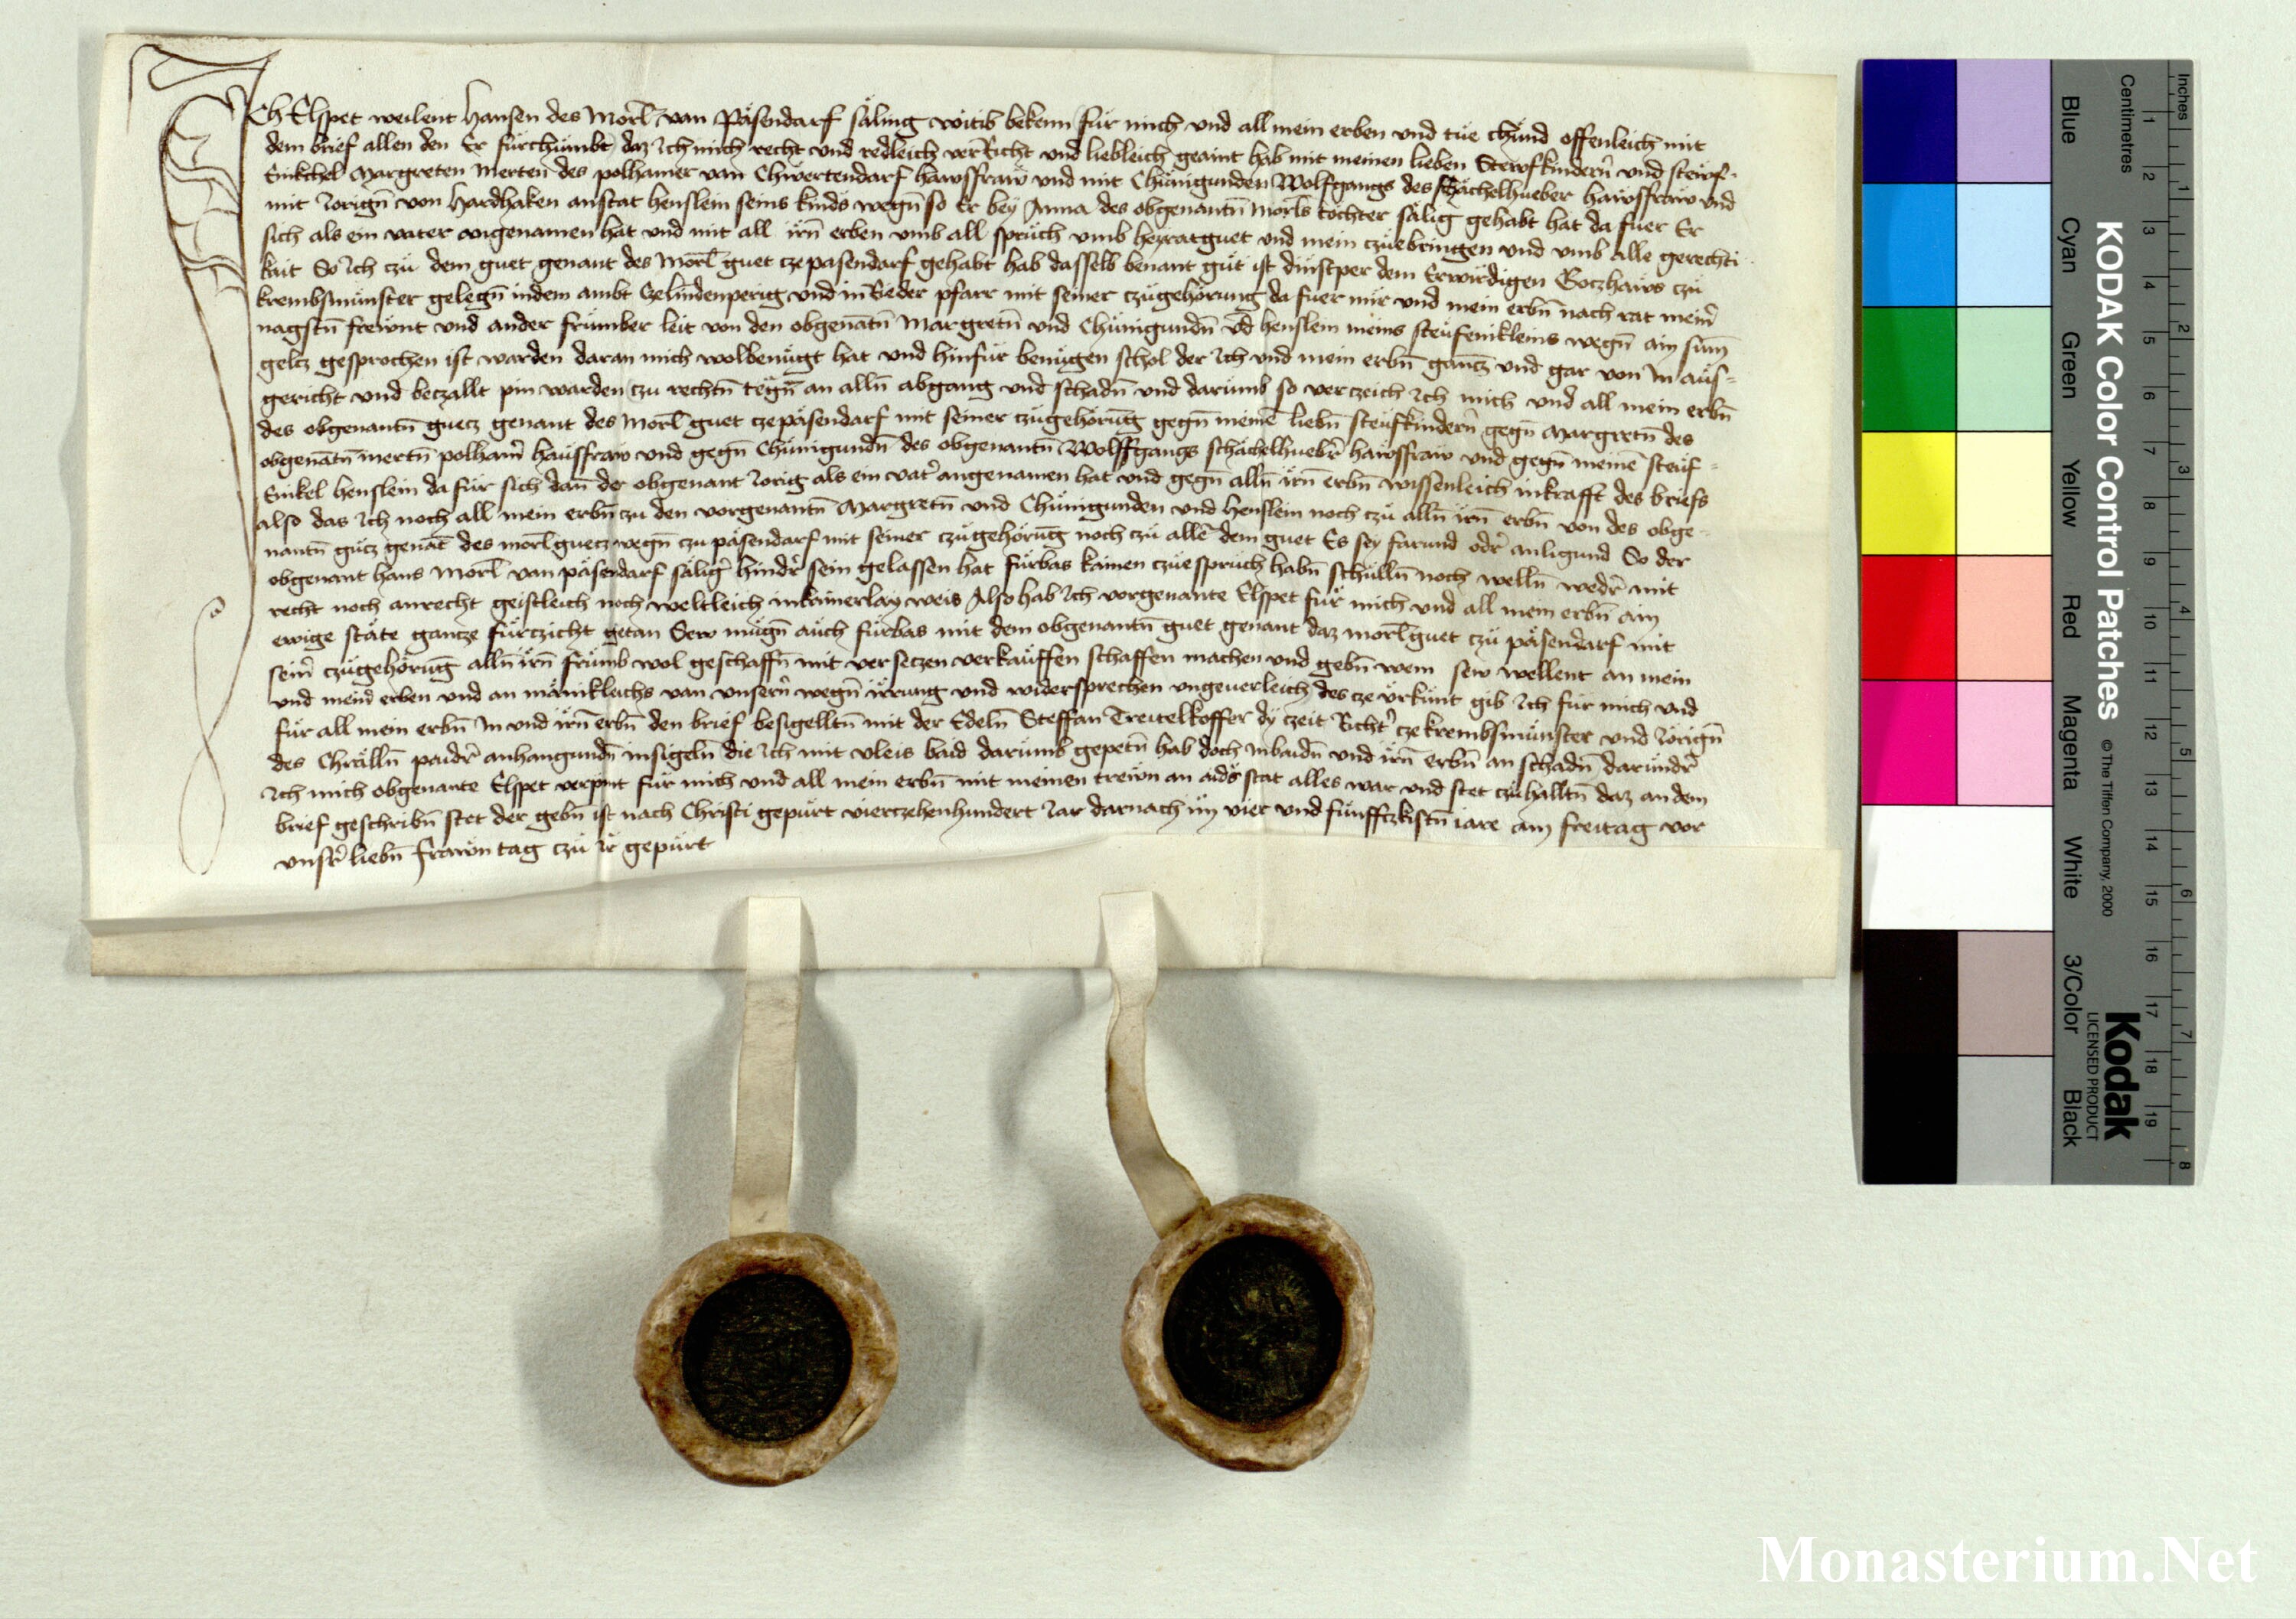 Ich Elspet weilent Hansen des Mörl van Päsendarf säling witib bekenn für mich vnd all mein erben vnd tüe chünd offenleich mit
dem brief allen den Er fürchümbt daz Ich mich recht vnd redleich verRicht vnd liebleich geaint hab mit meinen lieben Stewfkindern̄ vnd stewf-
Enikchel Margreten Merten des polhamer van Chwertendarf hawsfraw vnd mit Chünigunden Wolfgangs des schächelhueber hawsfraw vnd
mit Iörign̄ von Hardhaken anstat henslein seins kinds wegn̄ so Er bey Anna des obgenantn̄ Mörls tochter sälig gehabt hat da fuer Er
sich als ein vater angenamen hat vnd mit all irn̄ erben vmb all sprüch vmb heyratguet vnd mein czuebringen vnd vmb alle gerechti-
kait So Ich czü dem guet genant des Mörl guet cze pasendarf gehabt hab dasselb benant güt ist dinstper dem Erwirdigen Goczhaws czü
krembsmünster gelegn̄ indem ambt vnd in Rieder pfarr mit seiner czügehörung da fuer mir vnd mein erbn̄ nach rat mein̄
nagstn̄ frewnt vnd ander frümber leit von den obgenātn̄ Margretn̄ vnd Chünigundn̄ vn̄d henslein meins steufenikleins wegn̄ ain sum̄
geltz gesprochen ist warden daran mich wolbenügt hat vnd hinfür benügen schol der Ich vnd mein erbn̄ gancz vnd gar von In aus-
gericht vnd beczallt pin warden czu rechtn̄ tëgn̄ an alln̄ abgang vnd schadn̄ vnd darümb so verczeich Ich mich vnd all mein erbn̄
des obgenantn̄ guecz genant des Mörl guet cze päsendarf mit seiner czugehörūg gegn̄ meinē liebn̄ steufkindern̄ gegn̄ Margretn̄ des
obgenātn̄ mertn̄ polham̄ hausfraw vnd gegn̄ Chünigundn̄ des obgenantn̄ Wolffgangs schächelhueb̄r hawsfraw vnd gegn̄ meinē steuf-
Enikel henslein da für sich dan̄ der obgenant Iörig als ein vat̄ angenamen hat vnd gegn̄ alln̄ irn̄ erbn̄ wissenleich inkrafft des briefs
Also das Ich noch all mein erbn̄ czu den vorgenantn̄ Margretn̄ vnd Chünigunden vnd henslein noch czü alln̄ irn̄ erbn̄ von des obge-
nantn̄ gucz genāt des mörl guecz wegn̄ czu päsendarf mit seiner czügehörūg noch czü allē dem guet Es sey farund od̄r anligund So der
obgenant hans Mörl van päsendarf säliḡ hind̄r sein gelassen hat fürbas kainen czuespruch habn̄ schülln̄ noch welln̄ wed̄r mit
recht noch anrecht geistleich noch weltleich inkainerlay weis Also hab Ich vorgenante Elspet für mich vnd all mein erbn̄ ain
ewige stäte gancze fürczicht getan Sew mügn̄ auch fürbas mit dem obgenantn̄ guet genant daz mörl guet czü päsendarf mit
sein̄ czügehörūg alln̄ irn̄ frümb wol geschaffn̄ mit verseczen verkauffen schaffen machen vnd gebn̄ wem sew wellent an mein
vnd mein̄ erben vnd an mänikleichs van vnsern̄ wegn̄ irrung vnd widersprechen vngeuerleich des cze vrkünt gib Ich für mich vnd
für all mein erbn̄ In vnd irn̄ erbn̄ den brief besigelltn̄ mit der Edeln̄ Steffan Treitelkoffer dy czeit Richt̄ cze krembsmünster vnd Iörign̄
des Chrälln̄ paid̄r anhangundn̄ insigeln̄ die Ich mit vleis baid darümb gepetn̄ hab doch In baidn̄ vnd irn̄ erbn̄ an schadn̄ daründ̄r
Ich mich obgenante Elspet verpint für mich vnd all mein erbn̄ mit meinen trewn an aids stat alles war vnd stet czu halltn̄ daz an dem
brief geschribn̄ stet der gebn̄ ist nach Christi gepürt vierczehenhundert Iar darnach im vier vnd fünfftzkistn̄ iare am freitag vor
vns̄r liebn̄ frawn tag czü ir gepürt
KODAK Color Control Patches © The Tiffen Company, 2000
Kodak
LICENSED PRODUCT
Inches 1 2 3 4 5 6 7 8
Centimetres 1 2 3 4 5 6 7 8 9 10 11 12 13 14 15 16 17 18 19
Blue Cyan Green Yellow Red Magenta White 3/Color Black
Monasterium.Net